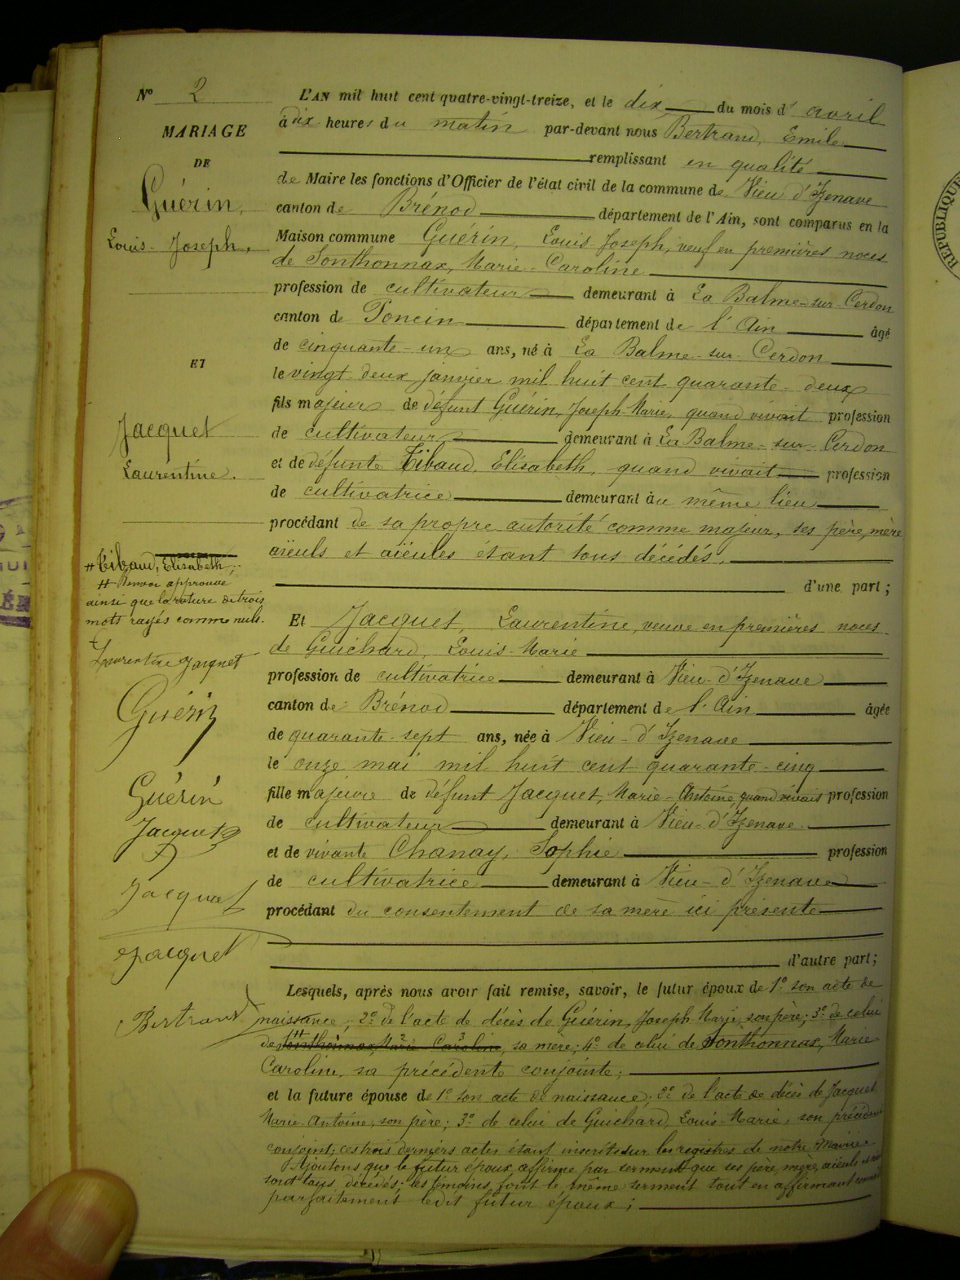 N° 2
MARIAGE
DE
Guérin,
Louis-Joseph.
ET
Jacquet
Laurentine.
# Tibaud, Elisabeth;
# Renvoi approuvé
ainsi que la rature de trois
mots rayés comme nuls.
Laurentine Jacquet
Guérin
Guérin
Jacquet
Jacquet
Jacquet
Bertrand
L'AN mil huit cent quatre-vingt-treize, et le dix du mois d'avril
à dix heures du matin par-devant nous Bertrand, Emile
remplissant en qualité
de Maire les fonctions d'Officier de l'état civil de la commune de Vieu d'Izenave
canton de Brénod département de l'Ain, sont comparus en la
Maison commune Guérin, Louis Joseph, veuf en premières noces
de Sonthonnax, Marie-Caroline
profession de cultivateur demeurant à La Balme-sur-Cerdon
canton de Poncin département de l'Ain âgé
de cinquante-un ans, né à La Balme-sur-Cerdon
le vingt deux janvier mil huit cent quarante-deux
fils majeur de défunt Guérin, Joseph-Marie, quand vivait profession
de cultivateur demeurant à La Balme-sur-Cerdon
et de défunte Tibaud, Elisabeth, quand vivait profession
de cultivatrice demeurant au même lieu
procédant de sa propre autorité comme majeur, ses père, mère
aïeuls et aïeules étant tous décédés,
d'une part;
Et Jacquet, Laurentine, veuve en premières noces
de Guichard, Louis-Marie
profession de cultivatrice demeurant à Vieu-d'Izenave
canton de Brénod département de l'Ain âgée
de quarante-sept ans, née à Vieu-d'Izenave
le onze mai mil huit cent quarante-cinq
fille majeure de défunt Jacquet, Marie-Antoine quand vivait profession
de cultivateur demeurant à Vieu-d'Izenave
et de vivante Chanay, Sophie profession
de cultivatrice demeurant à Vieu-d'Izenave
procédant du consentement de sa mère ici présente
d'autre part;
Lesquels, après nous avoir fait remise, savoir, le futur époux de 1° son acte de
naissance; 2° de l'acte de décès de Guérin, Joseph-Marie, son père; 3° de celui
de # Sonthonnax, Marie Caroline, sa mère; 4° de celui de Sonthonnax, Marie
Caroline, sa précédente conjointe;
et la future épouse de 1° son acte de naissance; 2° de l'acte de décès de Jacquet
Marie-Antoine, son père; 3° de celui de Guichard, Louis-Marie, son précédent
conjoint; ces trois derniers actes étant inscrits sur les registres de notre Mairie.
Ajoutons que le futur époux affirme par serment que ses père, mère, aïeuls et
sont tous décédés; les témoins font le même serment tout en affirmant
parfaitement ledit futur époux;
RÉPUBLIQUE